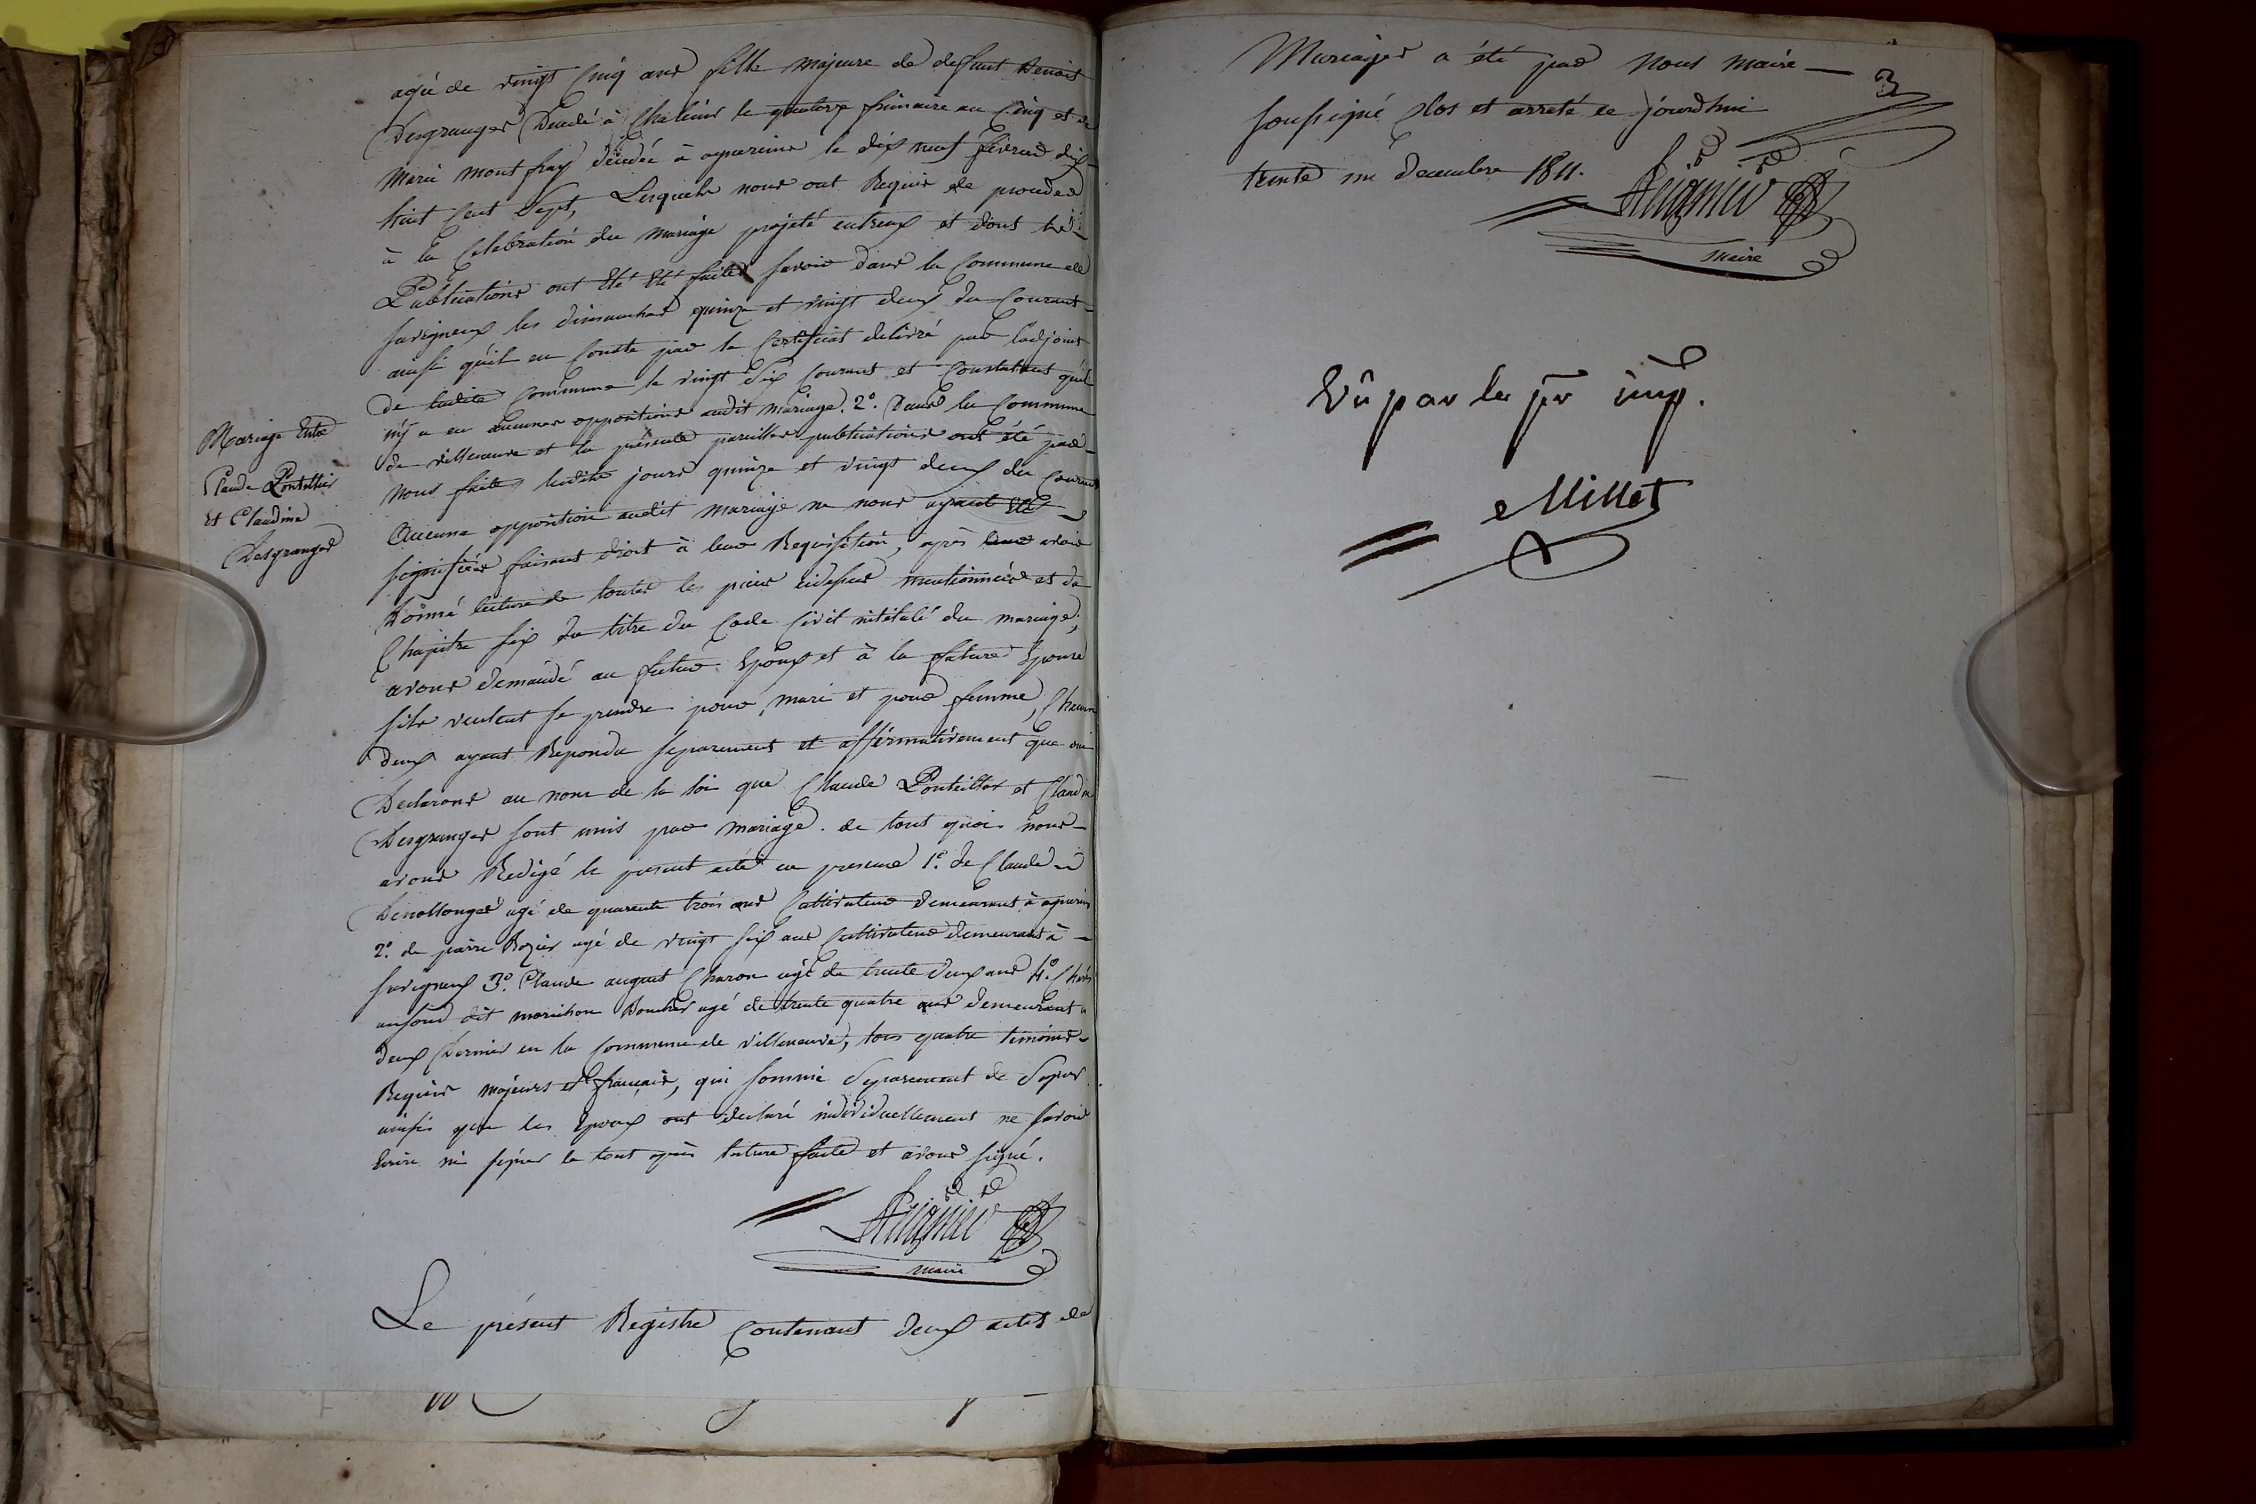 agée de vingt Cinq ans fille majeure de defunt Benoit
Desgranges Décédé à Chalins le quatorze frimaire an Cinq et de
Marie Montfray décédée à agnereins le dix neuf fevrier dix
huit Cent Sept, Lesquels nous ont Requis de proceder
à la Celebration du mariage projeté entreux et dont les
Publications ont Eté Eté faites savoir dans la Commune de
savigneux les dimanches quinze et vingt deux du Courant
ainsi quil en Conste par le Certificat delivré par ladjoint
de ladite Commune le vingt Six Courant et Constatant quil
ny a eu aucunes oppositions audit mariage. 2º. Dans la Commune
de villeneuve et la présente pareilles publications ont été par
Nous faites lesdits jours quinze et vingt deux du Courant
Aucune opposition audit mariage ne nous ayant Eté
signifiée faisant droit à leur Requisition, après leur avoir
Donné lecture de toutes les pieces cidessus mentionnées et du
Chapitre six du titre du Code Civil intitulé du mariage,
avons demandé au futur Epoux et à la future Epouse
sils veulent se prendre pour mari et pour femme, Chacun
deux ayant Repondu separement et affirmativement que oui
Declarons au nom de la loi que Claude Ponteillor et Claudine
Desgranges sont unis par mariage. de tout quoi nous
avons Redigé le present acte en presence 1º. de Claude
agé de quarante trois ans Cultivateur demeurant à agnereins
2º. de pierre Rozier agé de vingt six ans Cultivateur demeurant à
savigneux 3º. Claude august Charon agé de trente deux ans 4º.
dit Boucher agé de trente quatre ans demeurant
deux Derniers en la Commune de villeneuve, tous quatre temoins
Requis majeurs et français, qui sommé Separement de Signer
ainsi que les Epoux ont declaré individuellement ne savoir
Ecrire ni signer le tout après lecture faite et avons signé.
maire
Le présent Registre Contenant deux actes de
Mariage Entre
Claude Ponteillier
Et Claudine
Desgranges
Mariages a été par Nous maire
3
soussigné Clos et arreté ce jourdhui
trente un Decembre 1811.
Maire
Vû par le pr. imp.
Millet